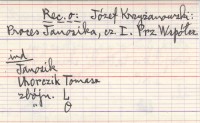 Rec. o: Józef Krzyżanowski:
Proces Janosika, cz I. Prz Współcz
ind
Janosik
Uhorczik Tomasz
zbójn. L
" O